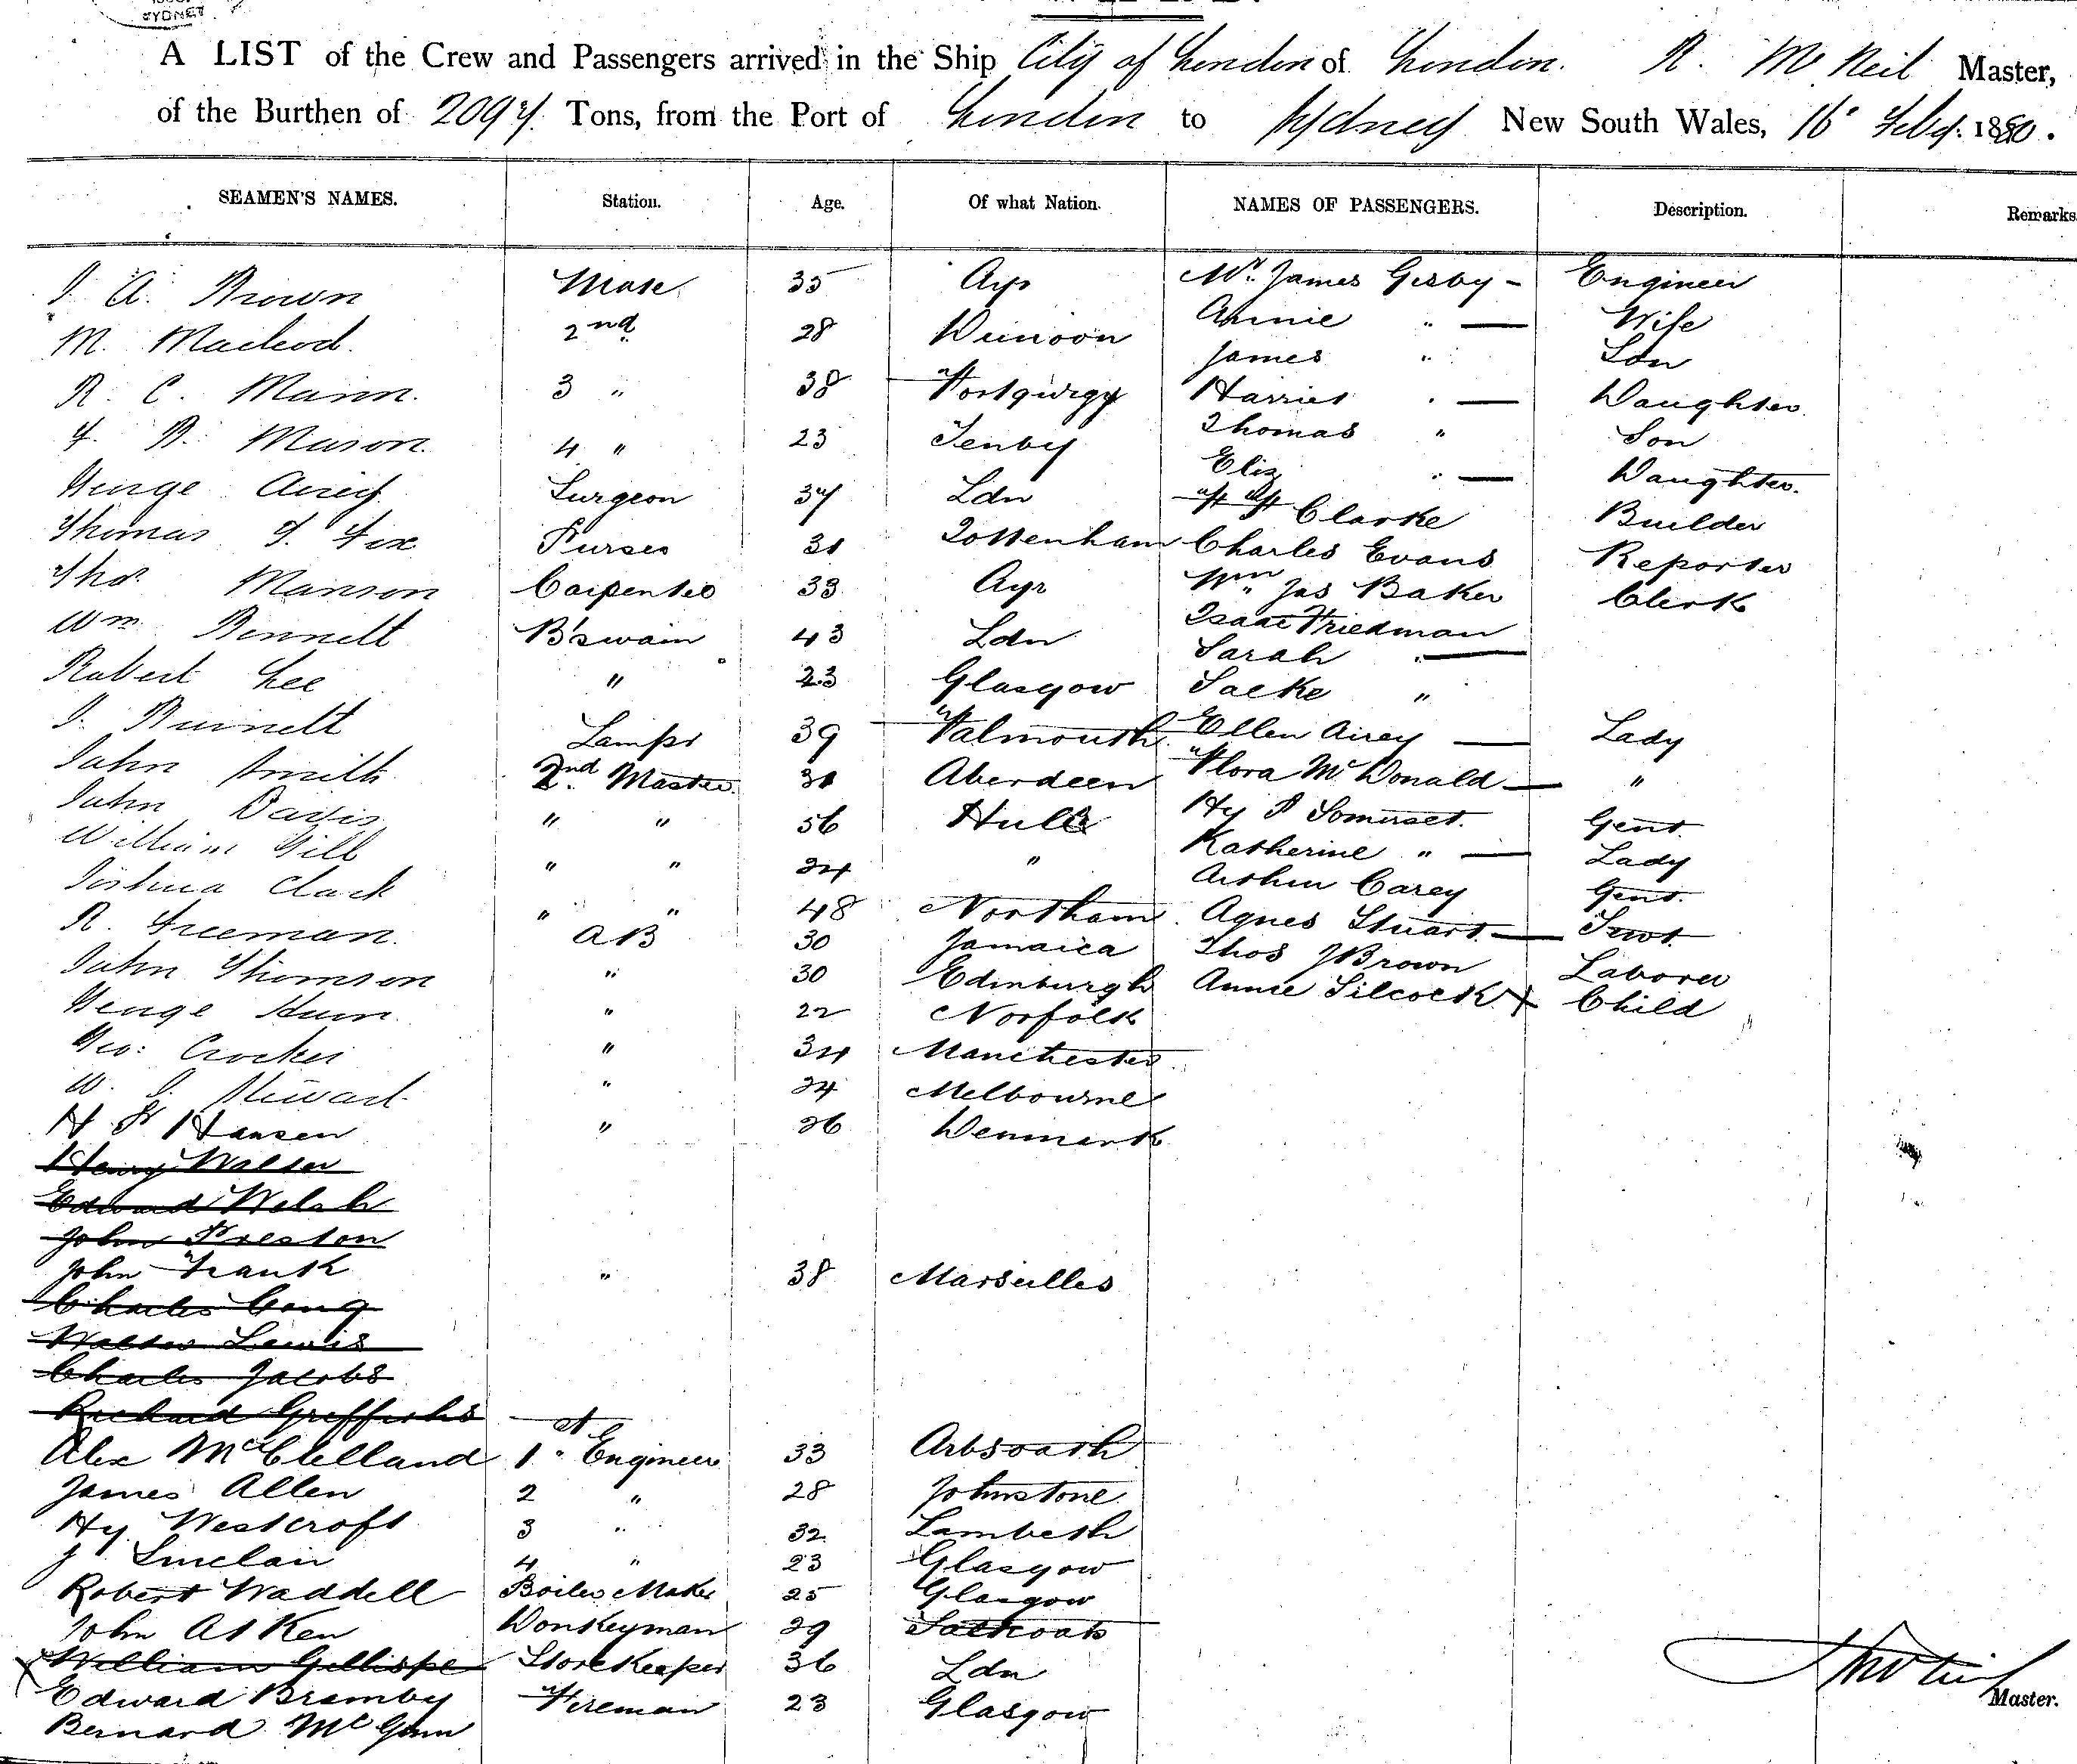 SYDNEY
A LIST of the Crew and Passengers arrived in the Ship City of London of London. R. McNeil Master,
of the Burthen of Tons, from the Port of London to Sydney New South Wales, 16 Feby. 1880.
SEAMEN'S NAMES. Station. Age. Of what Nation. NAMES OF PASSENGERS. Description. Remarks
A. Brown Mate 35 Ayr Mr. James Gerby - Engineer
M. Macleod. 2nd 28 Dunoon Annie " — Wife
James " Son
R. C. Mann. 3 " 38 Harriet " — Daughter
Mason. 4 " 23 Tenby Thomas " Son
Eliz " — Daughter.
George Airey Surgeon 34 Ldn Clarke Builder
Thomas J. Fox Purser 31 Tottenham Charles Evans Reporter
Thos. Manson Carpenter 33 Ayr Wm Jas Baker Clerk
Wm Bennett B'swain 43 Ldn Isaac Friedman
Sarah " —
Robert Lee " 23 Glasgow "
J. Burnett Lamps 39 Falmouth Ellen Airey — Lady
John Smith 2nd Master 31 Aberdeen Flora McDonald — "
John Davis " " 56 Hull Hy Somerset. Gent.
William Gill " " 24 " Katherine " — Lady
Arthur Carey Gent.
Joshua Clack " " 48 Northam Agnes Stuart — Servt.
R. Freeman. AB 30 Jamaica Thos J Brown Laborer
John Thomson " 30 Edinburgh Annie Silcock X Child
George " 22 Norfolk
Geo: Crocker " 34 Manchester
W. J. Steward " 24 Melbourne
H Hansen " 26 Denmark
Henry Walter
Edward Welsh
John Preston
John Frank " 38 Marseilles
Charles
Walter Lewis
Charles Jacobs
Richard Griffiths
Alex McClelland 1st Engineer 33 Arbroath
James Allen 2 " 28 Johnstone
Hy Westcroft 3 " 32 Lambeth
J Sinclair 4 " 23 Glasgow
Robert Waddell Boiler Maker 25 Glasgow
John Aitken Donkeyman 29 Saltcoats
X William Gillispe Storekeeper 36 Ldn
Edward Bramby Fireman 23 Glasgow
Bernard McGinn
Master.